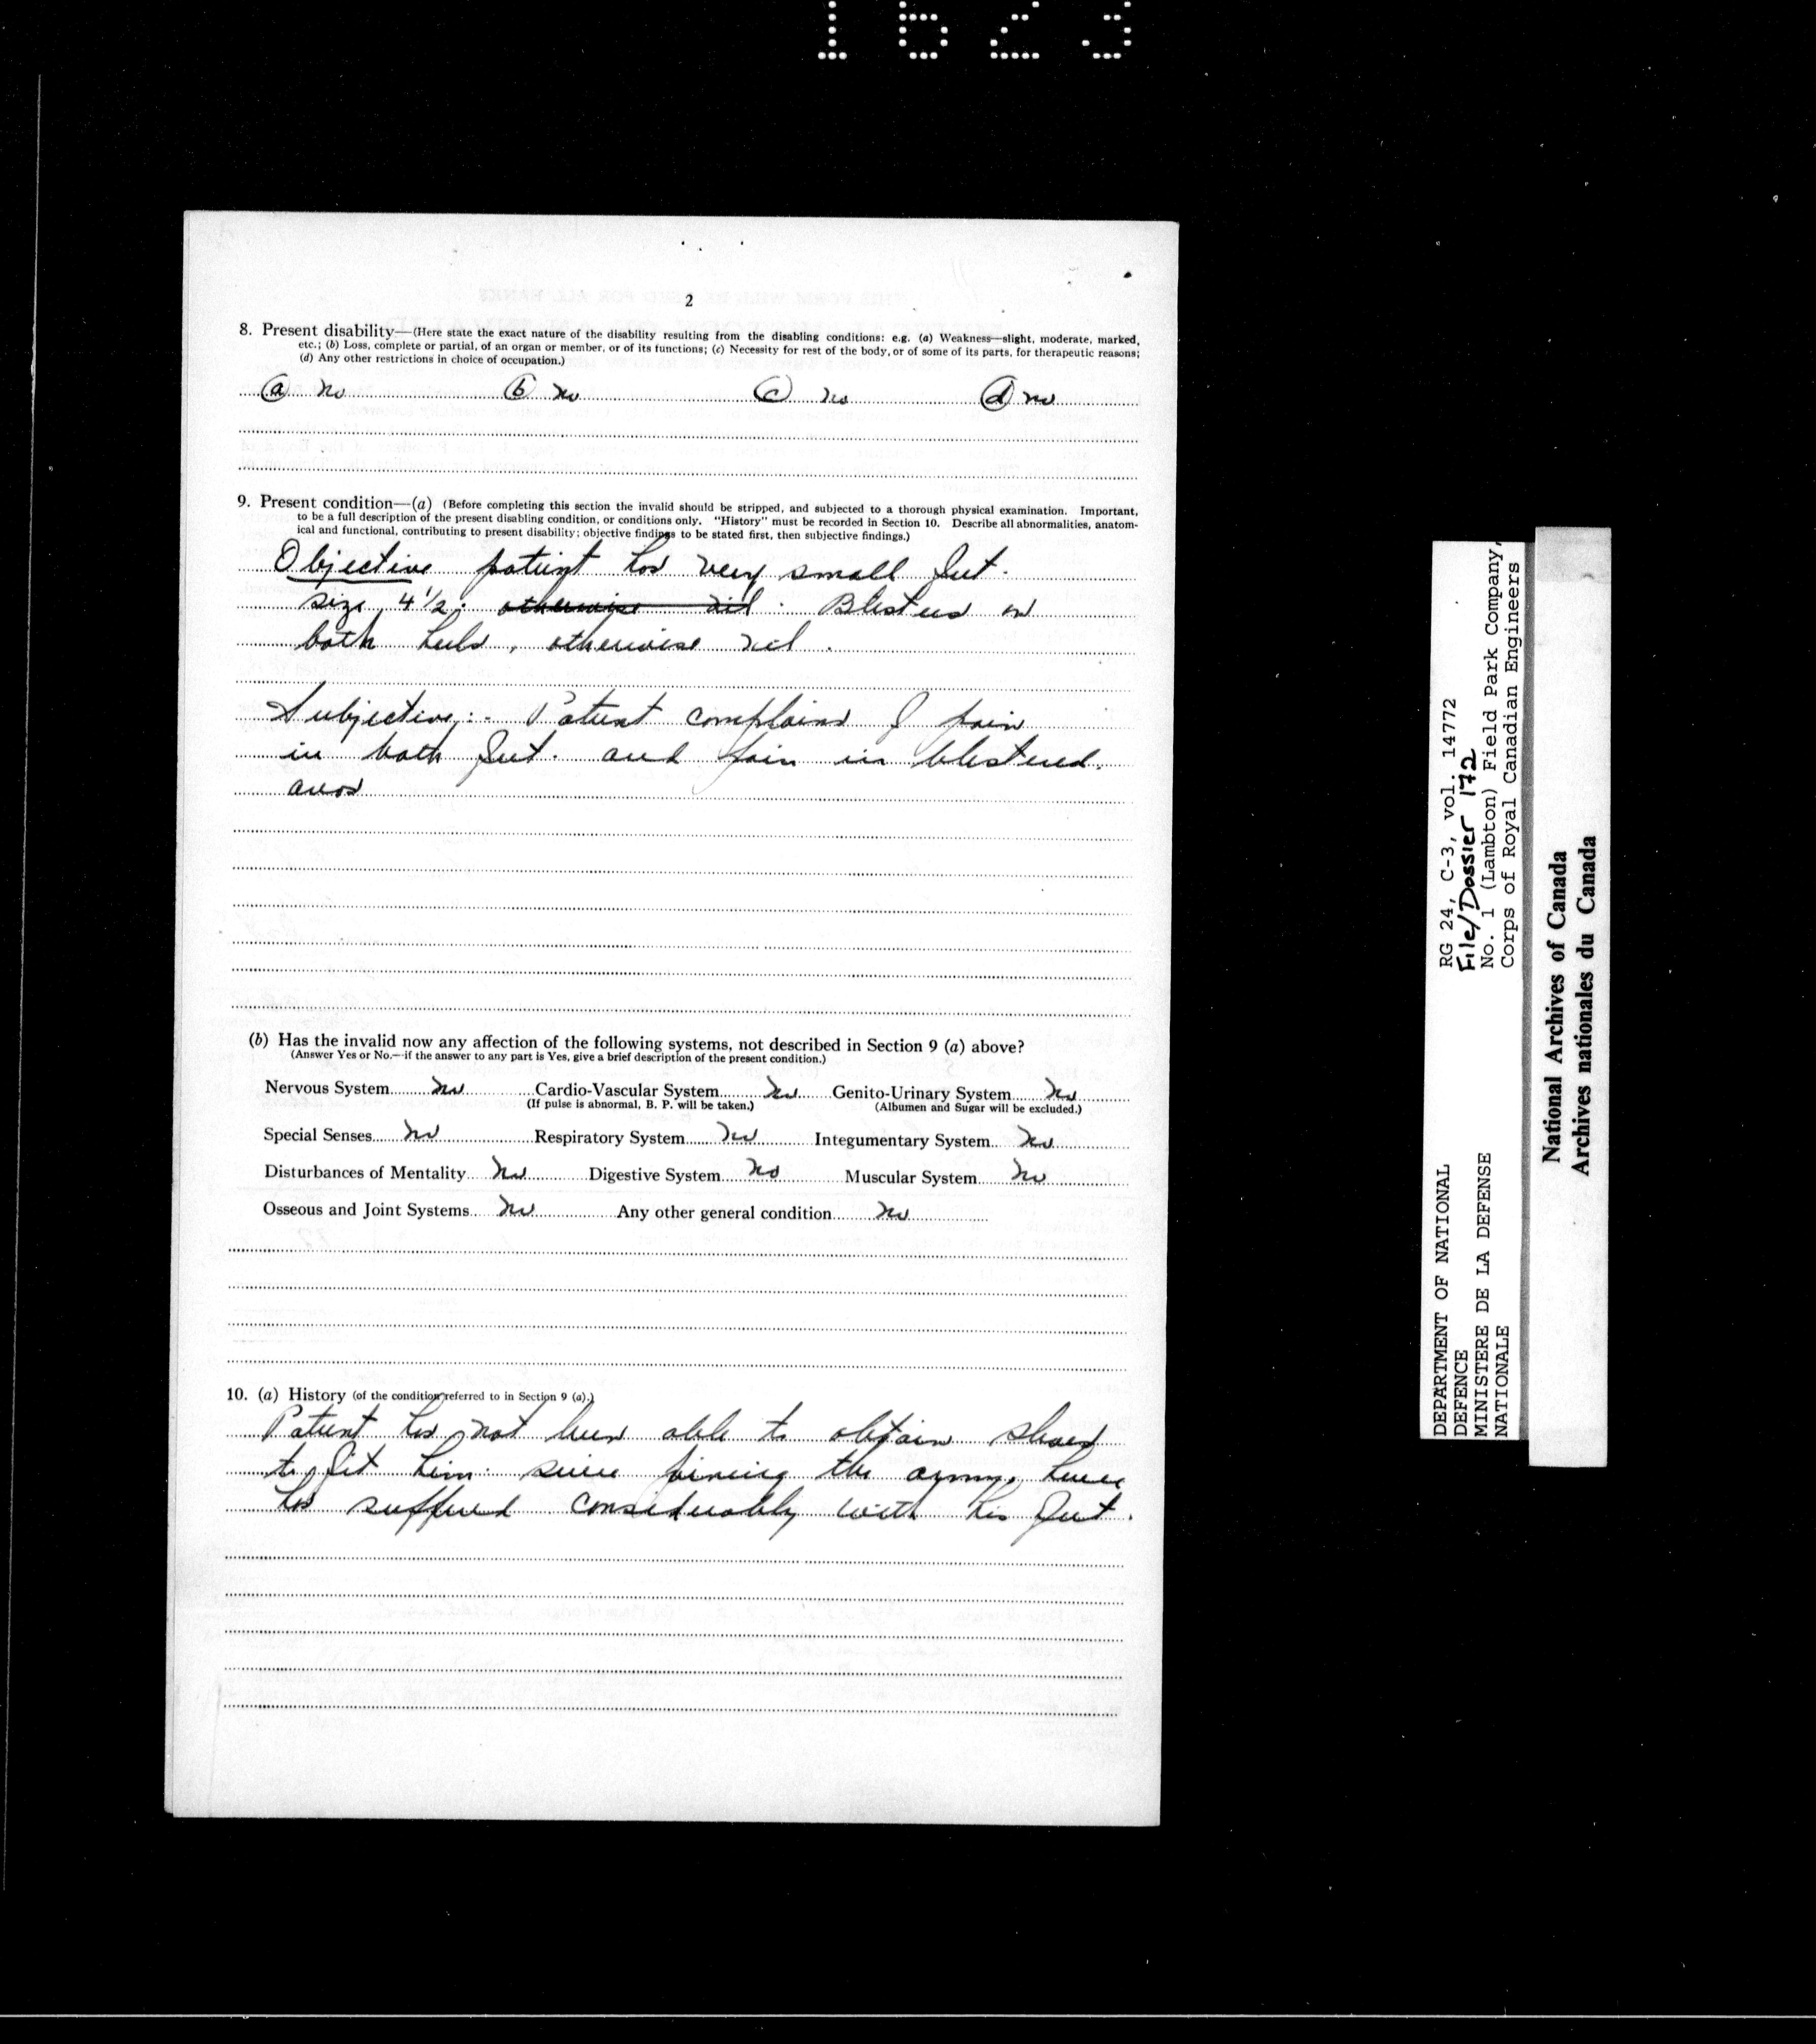 1623
2
8. Present disability—(Here state the exact nature of the disability resulting from the disabling conditions: e.g. (a) Weakness—slight, moderate, marked,
etc.; (b) Loss, complete or partial, of an organ or member, or of its functions; (c) Necessity for rest of the body, or of some of its parts, for therapeutic reasons;
(d) Any other restrictions in choice of occupation.)
(a) no (b) no (c) no (d) no
9. Present condition—(a) (Before completing this section the invalid should be stripped, and subjected to a thorough physical examination. Important,
to be a full description of the present disabling condition, or conditions only. "History" must be recorded in Section 10. Describe all abnormalities, anatom-
ical and functional, contributing to present disability; objective findings to be stated first, then subjective findings.)
Objective patient has very small feet.
size 4½. otherwise nil. Blisters on
both heels, otherwise nil.
Subjective:- Patient complains of pain
in both feet. and pain in blistered.
areas
(b) Has the invalid now any affection of the following systems, not described in Section 9 (a) above?
(Answer Yes or No.—if the answer to any part is Yes, give a brief description of the present condition.)
Nervous System no Cardio-Vascular System no Genito-Urinary System no
(If pulse is abnormal, B. P. will be taken.) (Albumen and Sugar will be excluded.)
Special Senses no Respiratory System no Integumentary System no
Disturbances of Mentality no Digestive System no Muscular System no
Osseous and Joint Systems no Any other general condition no
10. (a) History (of the condition referred to in Section 9 (a).)
Patient has not been able to obtain shoes
to fit him since joining the army, hence
has suffered considerably with his feet.
RG 24, C-3, vol. 14772
File/Dossier 172
No. 1 (Lambton) Field Park Company,
Corps of Royal Canadian Engineers
DEPARTMENT OF NATIONAL
DEFENCE
MINISTERE DE LA DEFENSE
NATIONALE
National Archives of Canada
Archives nationales du Canada